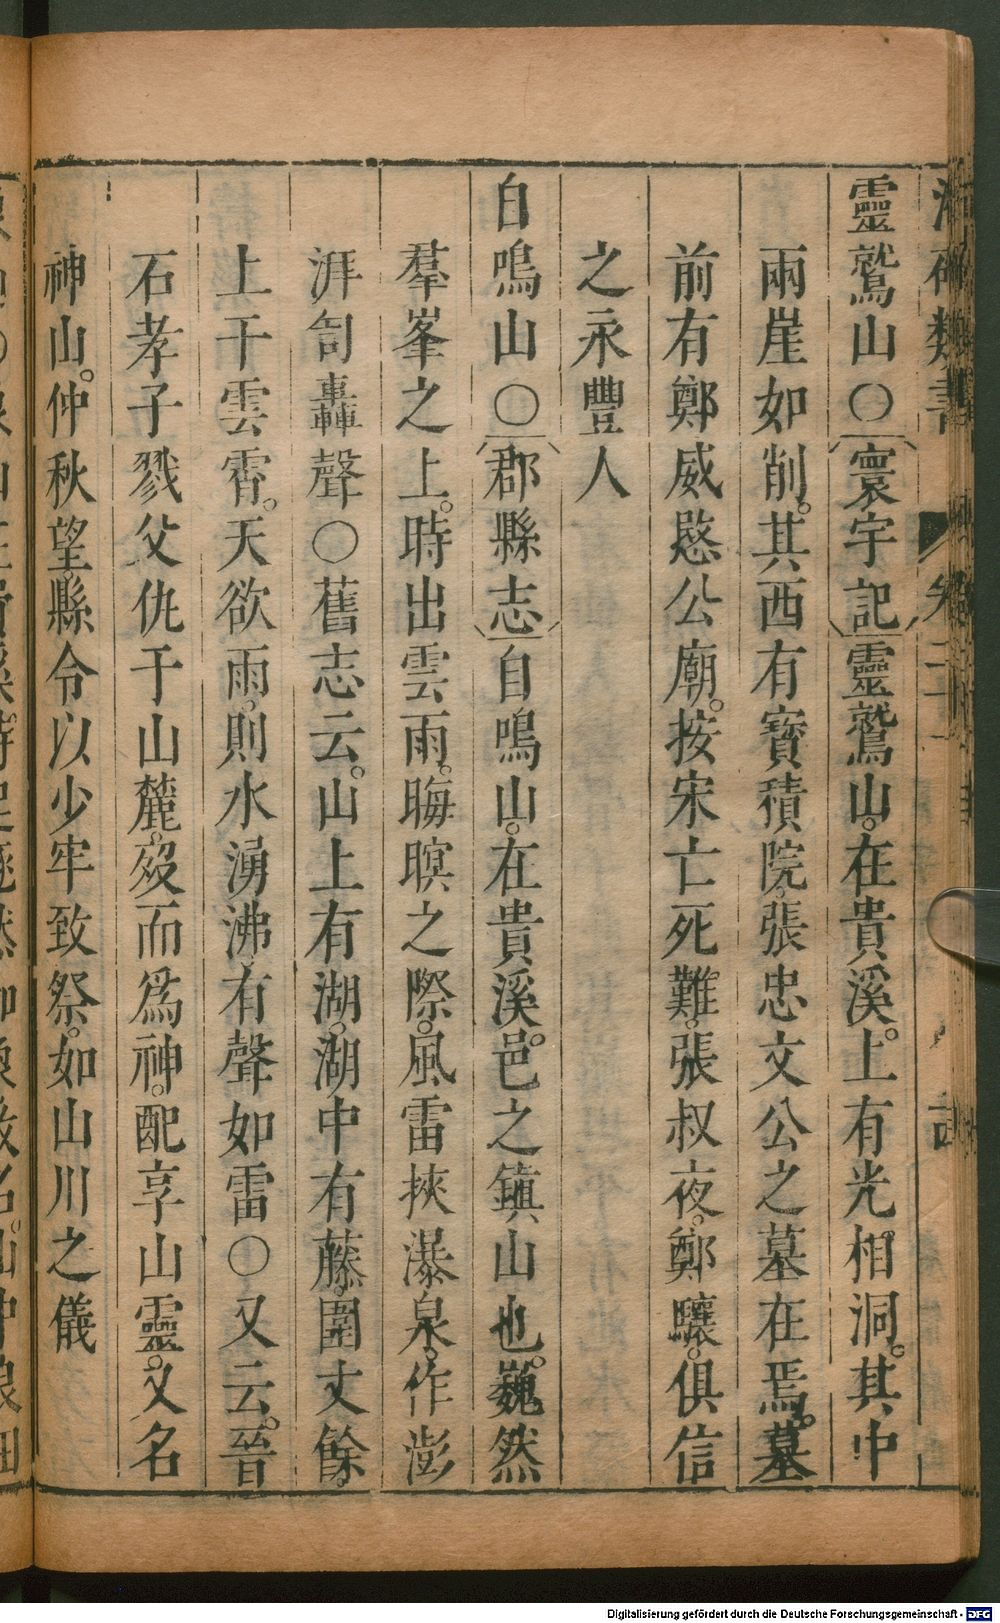 靈鷲山○寰宇記靈鷲山。在貴溪。上有光相洞。其中
兩崖如削。其西有寶積院。張忠文公之墓在焉。墓
前有鄭威愍公廟。按宋亡死難。張叔夜。鄭驤。俱信
之永豐人
自鳴山○郡縣志自鳴山。在貴溪。邑之鎮山也。巍然
羣峯之上。時出雲雨。晦暝之際。風雷挾瀑泉。作澎
湃訇轟聲○舊志云。山上有湖。湖中有藤。圍丈餘。
上干雲霄。天欲雨。則水湧沸。有聲如雷○又云。晉
石孝子戮父仇于山麓。歿而爲神。配享山靈。又名
神山。仲秋望。縣令以少牢致祭。如山川之儀
Digitalisierung gefördert durch die Deutsche Forschungsgemeinschaft - DFG